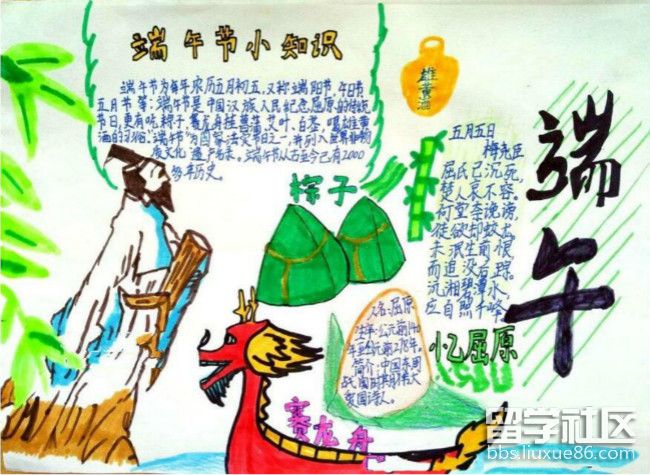 端午节小知识
端午节为每年农历五月初五,又称端阳节、午日节
五月节等;端午节是中国汉族人民纪念屈原的传统
节日,更有吃粽子,赛龙舟,挂菖蒲、艾叶、白芷,喝雄黄
酒的习俗。"端午节"为国家法定节日之一,并列入世界非物
质文化遗产名录。端午节从古至今已有2000
多年历史。
雄黄酒
粽子
五月五日
梅尧臣
屈氏已沉死,
楚人哀不容。
何尝奈谗谤,
徒欲却蛟龙。
未泯生前恨
而追没后踪。
沅湘碧潭水,
应自照千峰
端午
忆屈原
人名:屈原
简介:中国东周
战国时期伟大
爱国诗人。
赛龙舟
留学社区
bbs.liuxue86.com